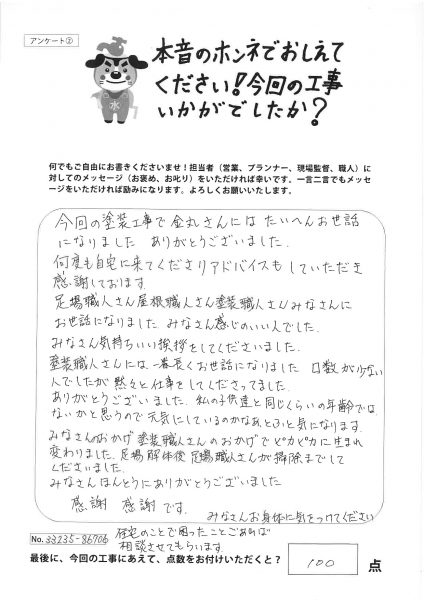 アンケート②
本音のホンネでおしえて
ください!今回の工事
いかがでしたか?
水
何でもご自由にお書きくださいませ!担当者(営業、プランナー、現場監督、職人)に
対してのメッセージ(お褒め、お叱り)をいただければ幸いです。一言二言でもメッセ
ージをいただければ励みになります。よろしくお願いいたします。
今回の塗装工事で金丸さんには たいへんお世話
になりました ありがとうございました.
何度も自宅に来てくださりアドバイスも していただき
感謝しております.
足場職人さん屋根職人さん塗装職人さんみなさんに
お世話になりました みなさん感じのいい人でした.
みなさん気持ちいい挨拶をしてくださいました.
塗装職人さんには、一番長くお世話になりました 口数が少ない
人でしたが 黙々と仕事をしてくださってました.
ありがとうございました. 私の子供達と同じくらいの年齢では
ないかと思うので元気にしているのかなあとふと気になります.
みなさんのおかげ塗装職人さんのおかげでピカピカに生まれ
変わりました. 足場解体後足場職人さんが掃除までして
くださいました.
みなさんほんとうにありがとうございました
感謝 感謝 です.
みなさんお身体に気をつけてください
住宅のことで困ったことごあれば
No.33235-86706
相談させてもらいます
最後に、今回の工事にあえて、点数をお付けいただくと? 100 点